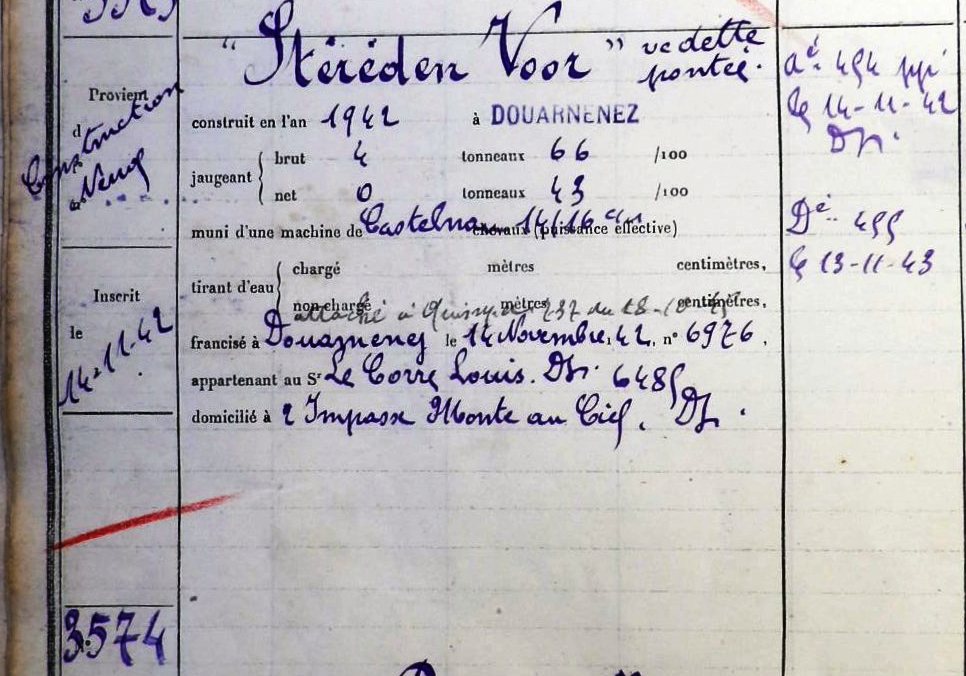 "Stéréden Voor" vedette
pontée.
Provient
d
Construction
Neuve
construit en l'an 1942 à DOUARNENEZ
jaugeant
brut 4 tonneaux 66 /100
net 0 tonneaux 43 /100
muni d'une machine de Castelnau 14/16 cv chevaux (puissance effective)
tirant d'eau
chargé mètres centimètres,
non chargé mètres centimètres,
attaché à du 18-10-
francisé à Douarnenez le 14 Novembre 42, n° 6976,
appartenant au Sr Le Corre Louis. Dz. 6485
domicilié à 2 Impasse Monte au Ciel. Dz.
Inscrit
le
14-11-42
Aé. 454
le 14-11-42
Dz.
Dé. 455
le 13-11-43
3574